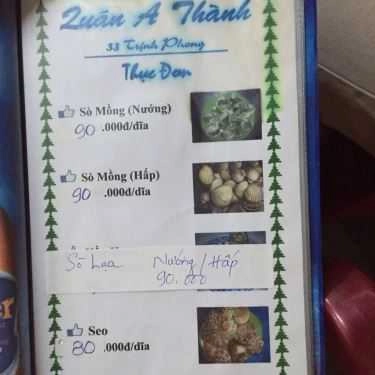 Quán A Thành
33 Trịnh Phong
Thực Đơn
Sò Mồng (Nướng)
90 .000đ/dĩa
Sò Mồng (Hấp)
90 .000đ/dĩa
Sò Lụa Nướng/Hấp
90.000
Seo
80 .000đ/dĩa